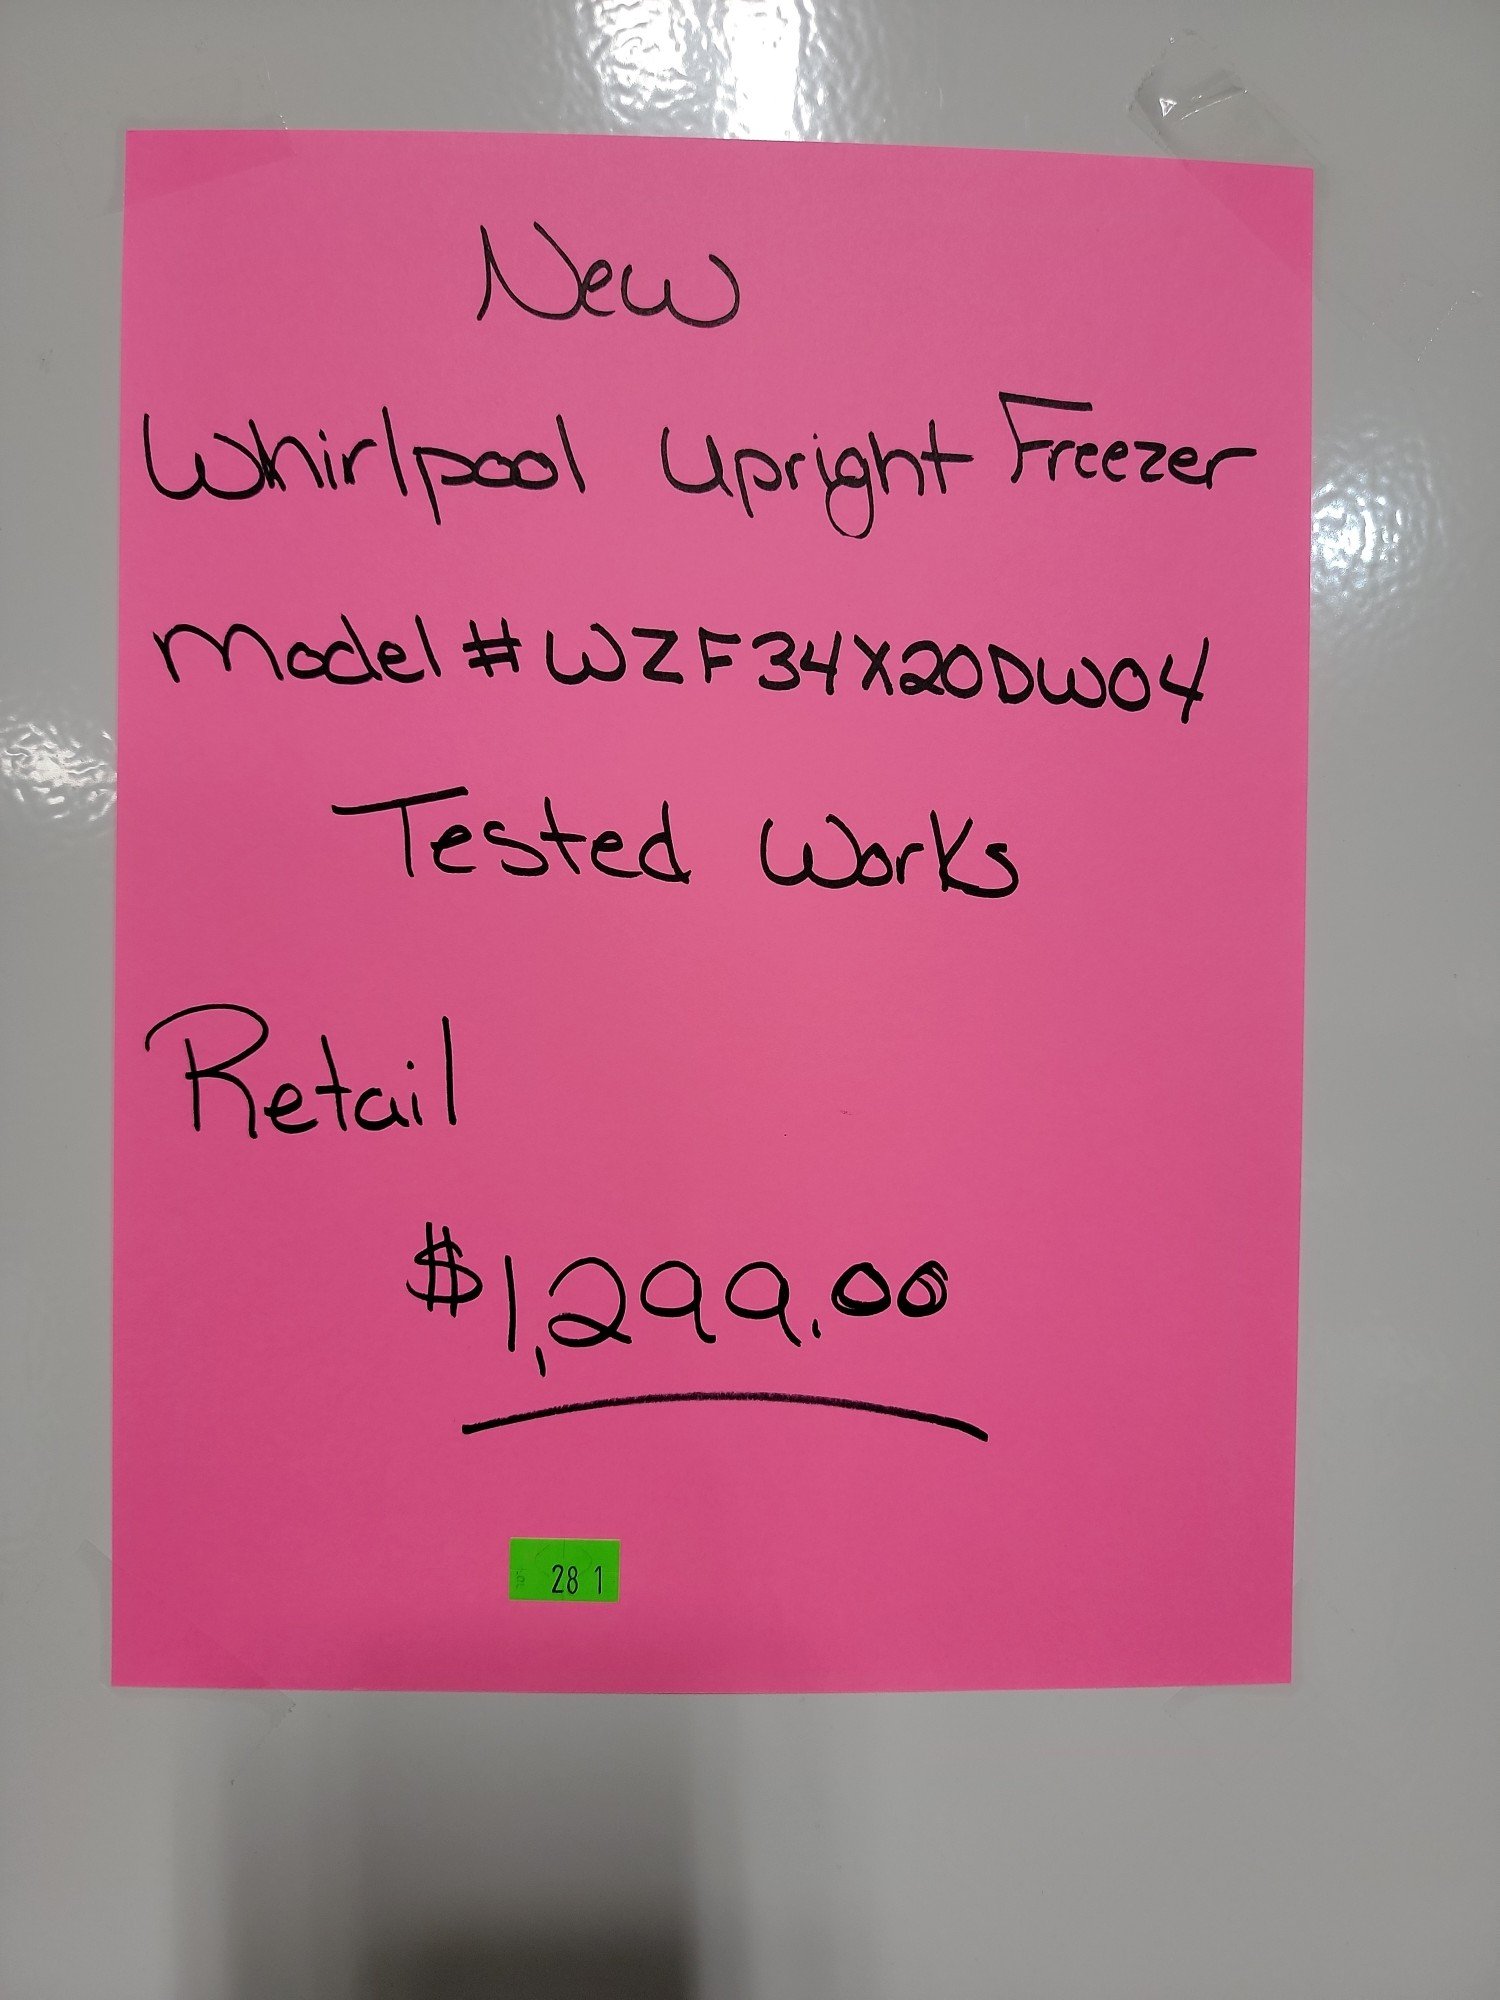 New
Whirlpool Upright Freezer
Model # WZF34X20DW04
Tested Works
Retail
$1,299.00
28 1